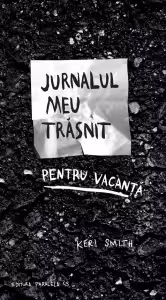 JURNALUL
MEU
TRĂSNIT
PENTRU VACANȚĂ
KERI SMITH
EDITURA PARALELA 45